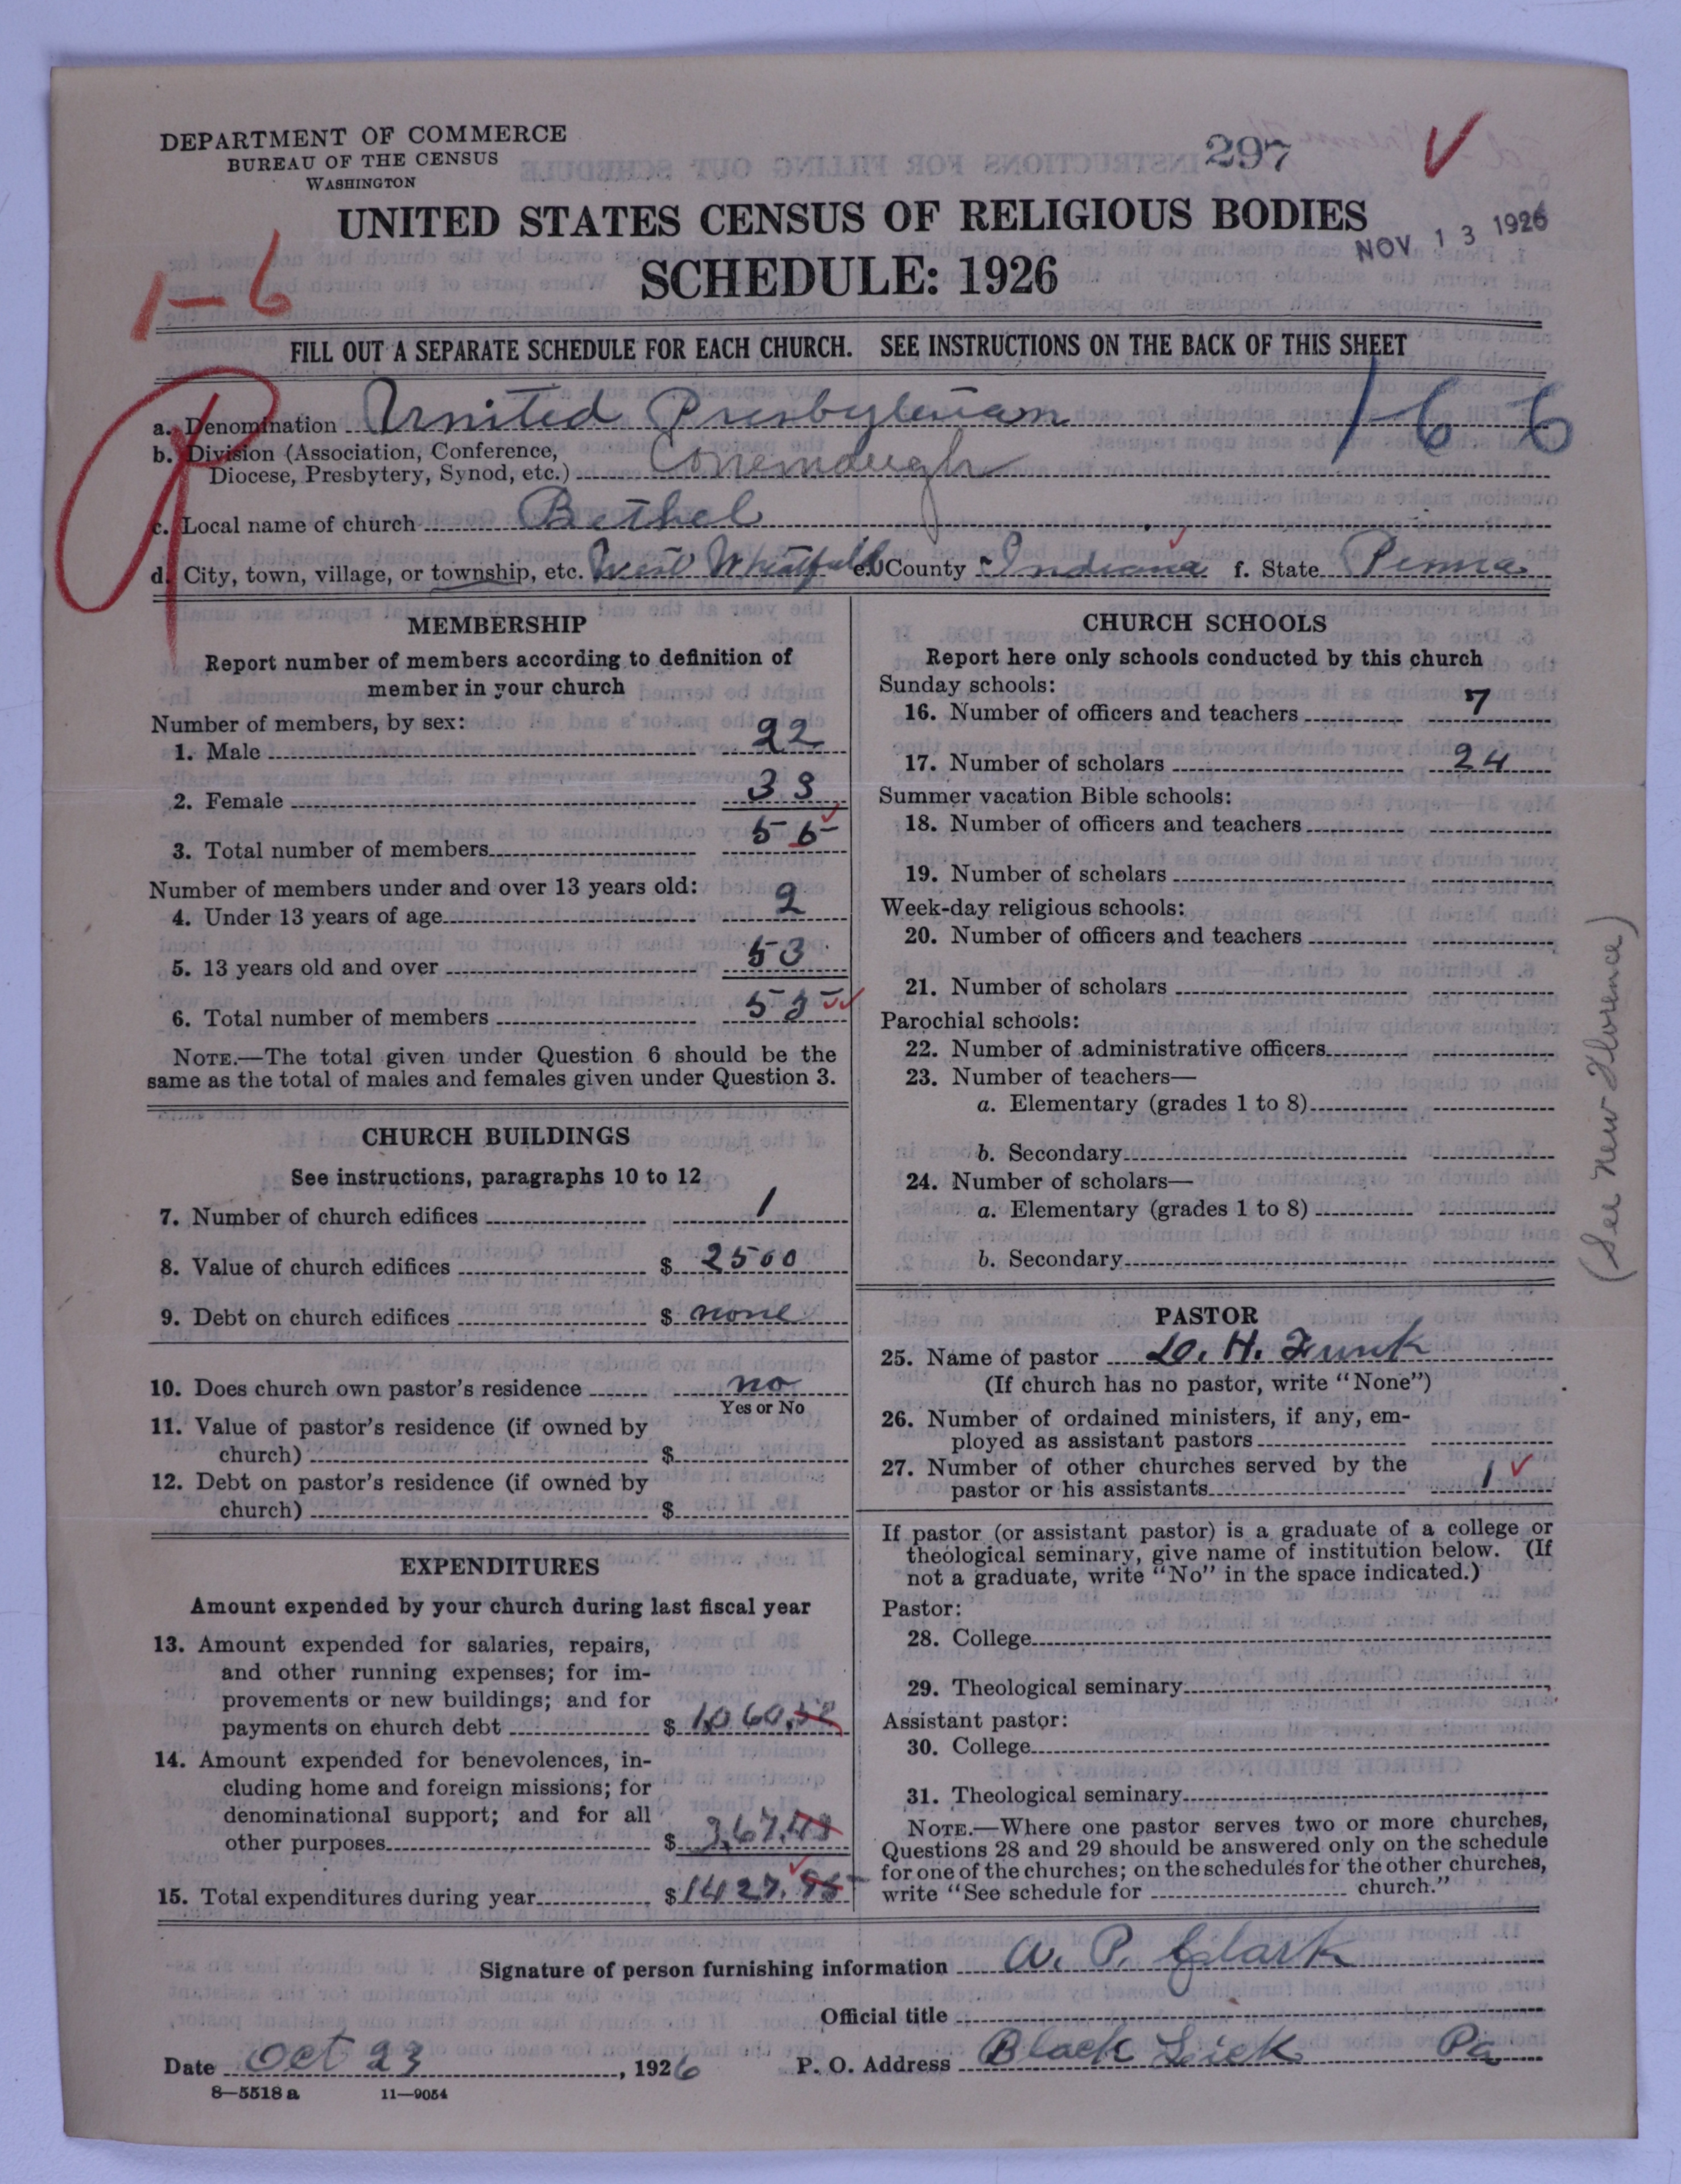 DEPARTMENT OF COMMERCE
BUREAU OF THE CENSUS
WASHINGTON
297
UNITED STATES CENSUS OF RELIGIOUS BODIES
NOV 13 1926
SCHEDULE: 1926
1-6
FILL OUT A SEPARATE SCHEDULE FOR EACH CHURCH. SEE INSTRUCTIONS ON THE BACK OF THIS SHEET
a. Denomination United Presbyterian 1-6 6
b. Division (Association, Conference,
Diocese, Presbytery, Synod, etc.) Conemaugh
c. Local name of church Bethel
d. City, town, village, or township, etc. West Wheatfield e. County Indiana f. State Penna
MEMBERSHIP
Report number of members according to definition of
member in your church
Number of members, by sex:
1. Male 22
2. Female 33
3. Total number of members 55
Number of members under and over 13 years old:
4. Under 13 years of age 2
5. 13 years old and over 53
6. Total number of members 55
NOTE.—The total given under Question 6 should be the
same as the total of males and females given under Question 3.
CHURCH BUILDINGS
See instructions, paragraphs 10 to 12
7. Number of church edifices 1
8. Value of church edifices $ 2500
9. Debt on church edifices $ none
10. Does church own pastor's residence no
Yes or No
11. Value of pastor's residence (if owned by
church) $
12. Debt on pastor's residence (if owned by
church) $
EXPENDITURES
Amount expended by your church during last fiscal year
13. Amount expended for salaries, repairs,
and other running expenses; for im-
provements or new buildings; and for
payments on church debt $ 1,060.
14. Amount expended for benevolences, in-
cluding home and foreign missions; for
denominational support; and for all
other purposes $ 367.43
15. Total expenditures during year $ 1427.
CHURCH SCHOOLS
Report here only schools conducted by this church
Sunday schools:
16. Number of officers and teachers 7
17. Number of scholars 24
Summer vacation Bible schools:
18. Number of officers and teachers
19. Number of scholars
Week-day religious schools:
20. Number of officers and teachers
21. Number of scholars
Parochial schools:
22. Number of administrative officers
23. Number of teachers—
a. Elementary (grades 1 to 8)
b. Secondary
24. Number of scholars—
a. Elementary (grades 1 to 8)
b. Secondary
PASTOR
25. Name of pastor D. H. Funk
(If church has no pastor, write "None")
26. Number of ordained ministers, if any, em-
ployed as assistant pastors
27. Number of other churches served by the
pastor or his assistants 1
If pastor (or assistant pastor) is a graduate of a college or
theological seminary, give name of institution below. (If
not a graduate, write "No" in the space indicated.)
Pastor:
28. College
29. Theological seminary
Assistant pastor:
30. College
31. Theological seminary
NOTE.—Where one pastor serves two or more churches,
Questions 28 and 29 should be answered only on the schedule
for one of the churches; on the schedules for the other churches,
write "See schedule for church."
(See New Florence)
Signature of person furnishing information W. P. Clark
Official title
Date Oct 23, 1926 P. O. Address Black Lick Pa
8—5518 a 11—9054